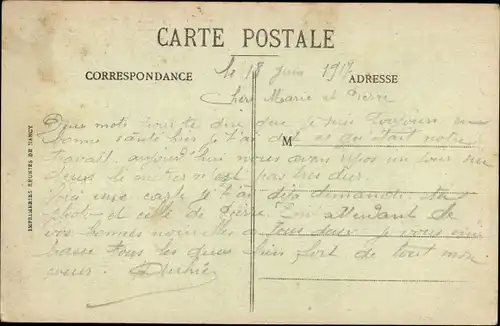 CARTE POSTALE
CORRESPONDANCE
ADRESSE
le 18 juin 1917
Chers Marie et Pierre
Deux mots pour te dire que je suis toujours en
bonne santé hier je t'ai dit ce qu'était notre
travail, aujourd'hui nous avons repos un jour sur
deux le métier n'est pas très dur.
Voici une carte je t'ai déjà demandé ta
photo et celle de Pierre. En attendant de
vos bonnes nouvelles à tous deux je vous em
brasse tous les deux bien fort de tout mon
cœur.
M
IMPRIMERIES RÉUNIES DE NANCY